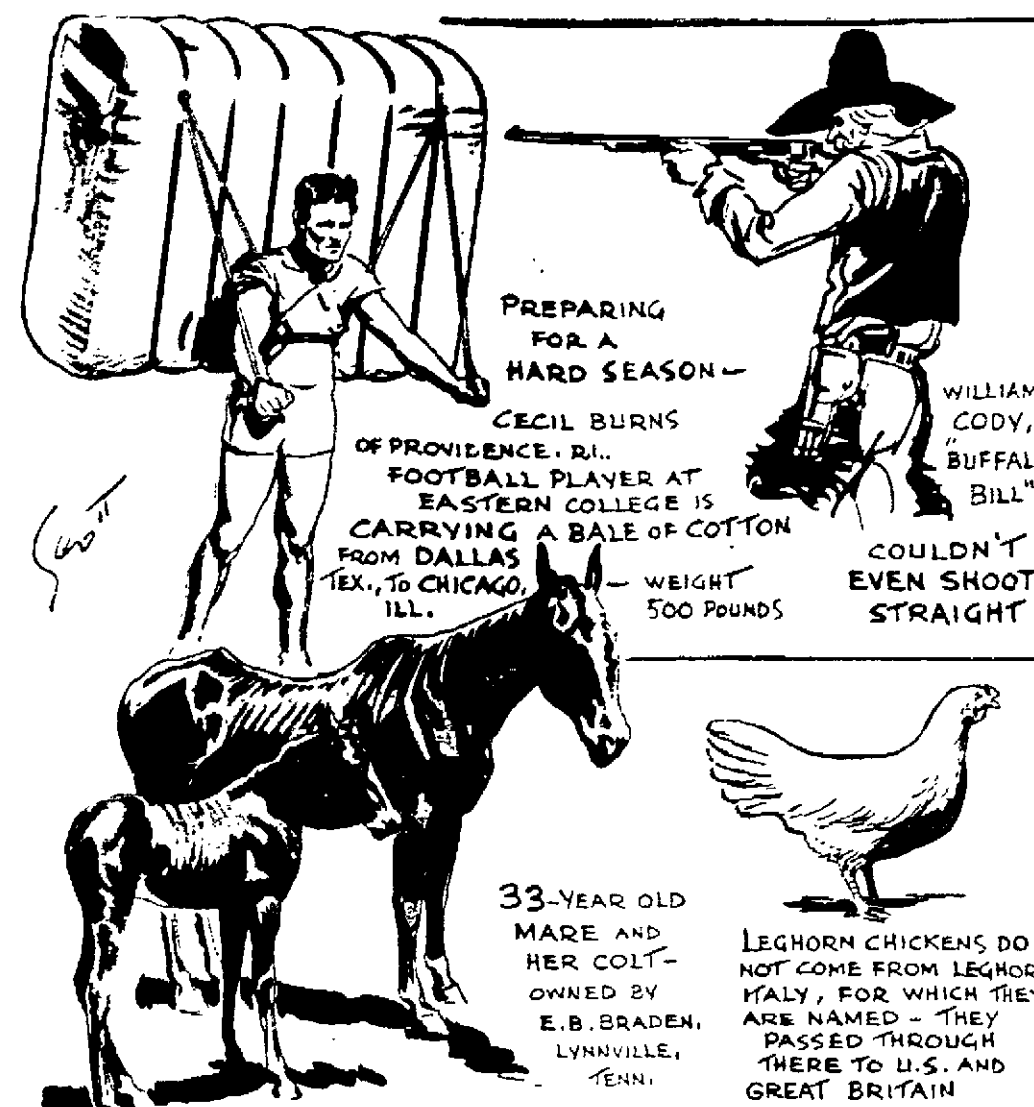 PREPARING
FOR A
HARD SEASON –
CECIL BURNS
OF PROVIDENCE. R.I..
FOOTBALL PLAYER AT
EASTERN COLLEGE IS
CARRYING A BALE OF COTTON
FROM DALLAS
TEX., TO CHICAGO,
ILL.
– WEIGHT
500 POUNDS
WILLIAM
CODY,
"BUFFAL
BILL"
COULDN'T
EVEN SHOOT
STRAIGHT
33-YEAR OLD
MARE AND
HER COLT –
OWNED BY
E.B. BRADEN,
LYNNVILLE,
TENN.
LEGHORN CHICKENS DO
NOT COME FROM LEGHOR
ITALY, FOR WHICH THEY
ARE NAMED – THEY
PASSED THROUGH
THERE TO U.S. AND
GREAT BRITAIN